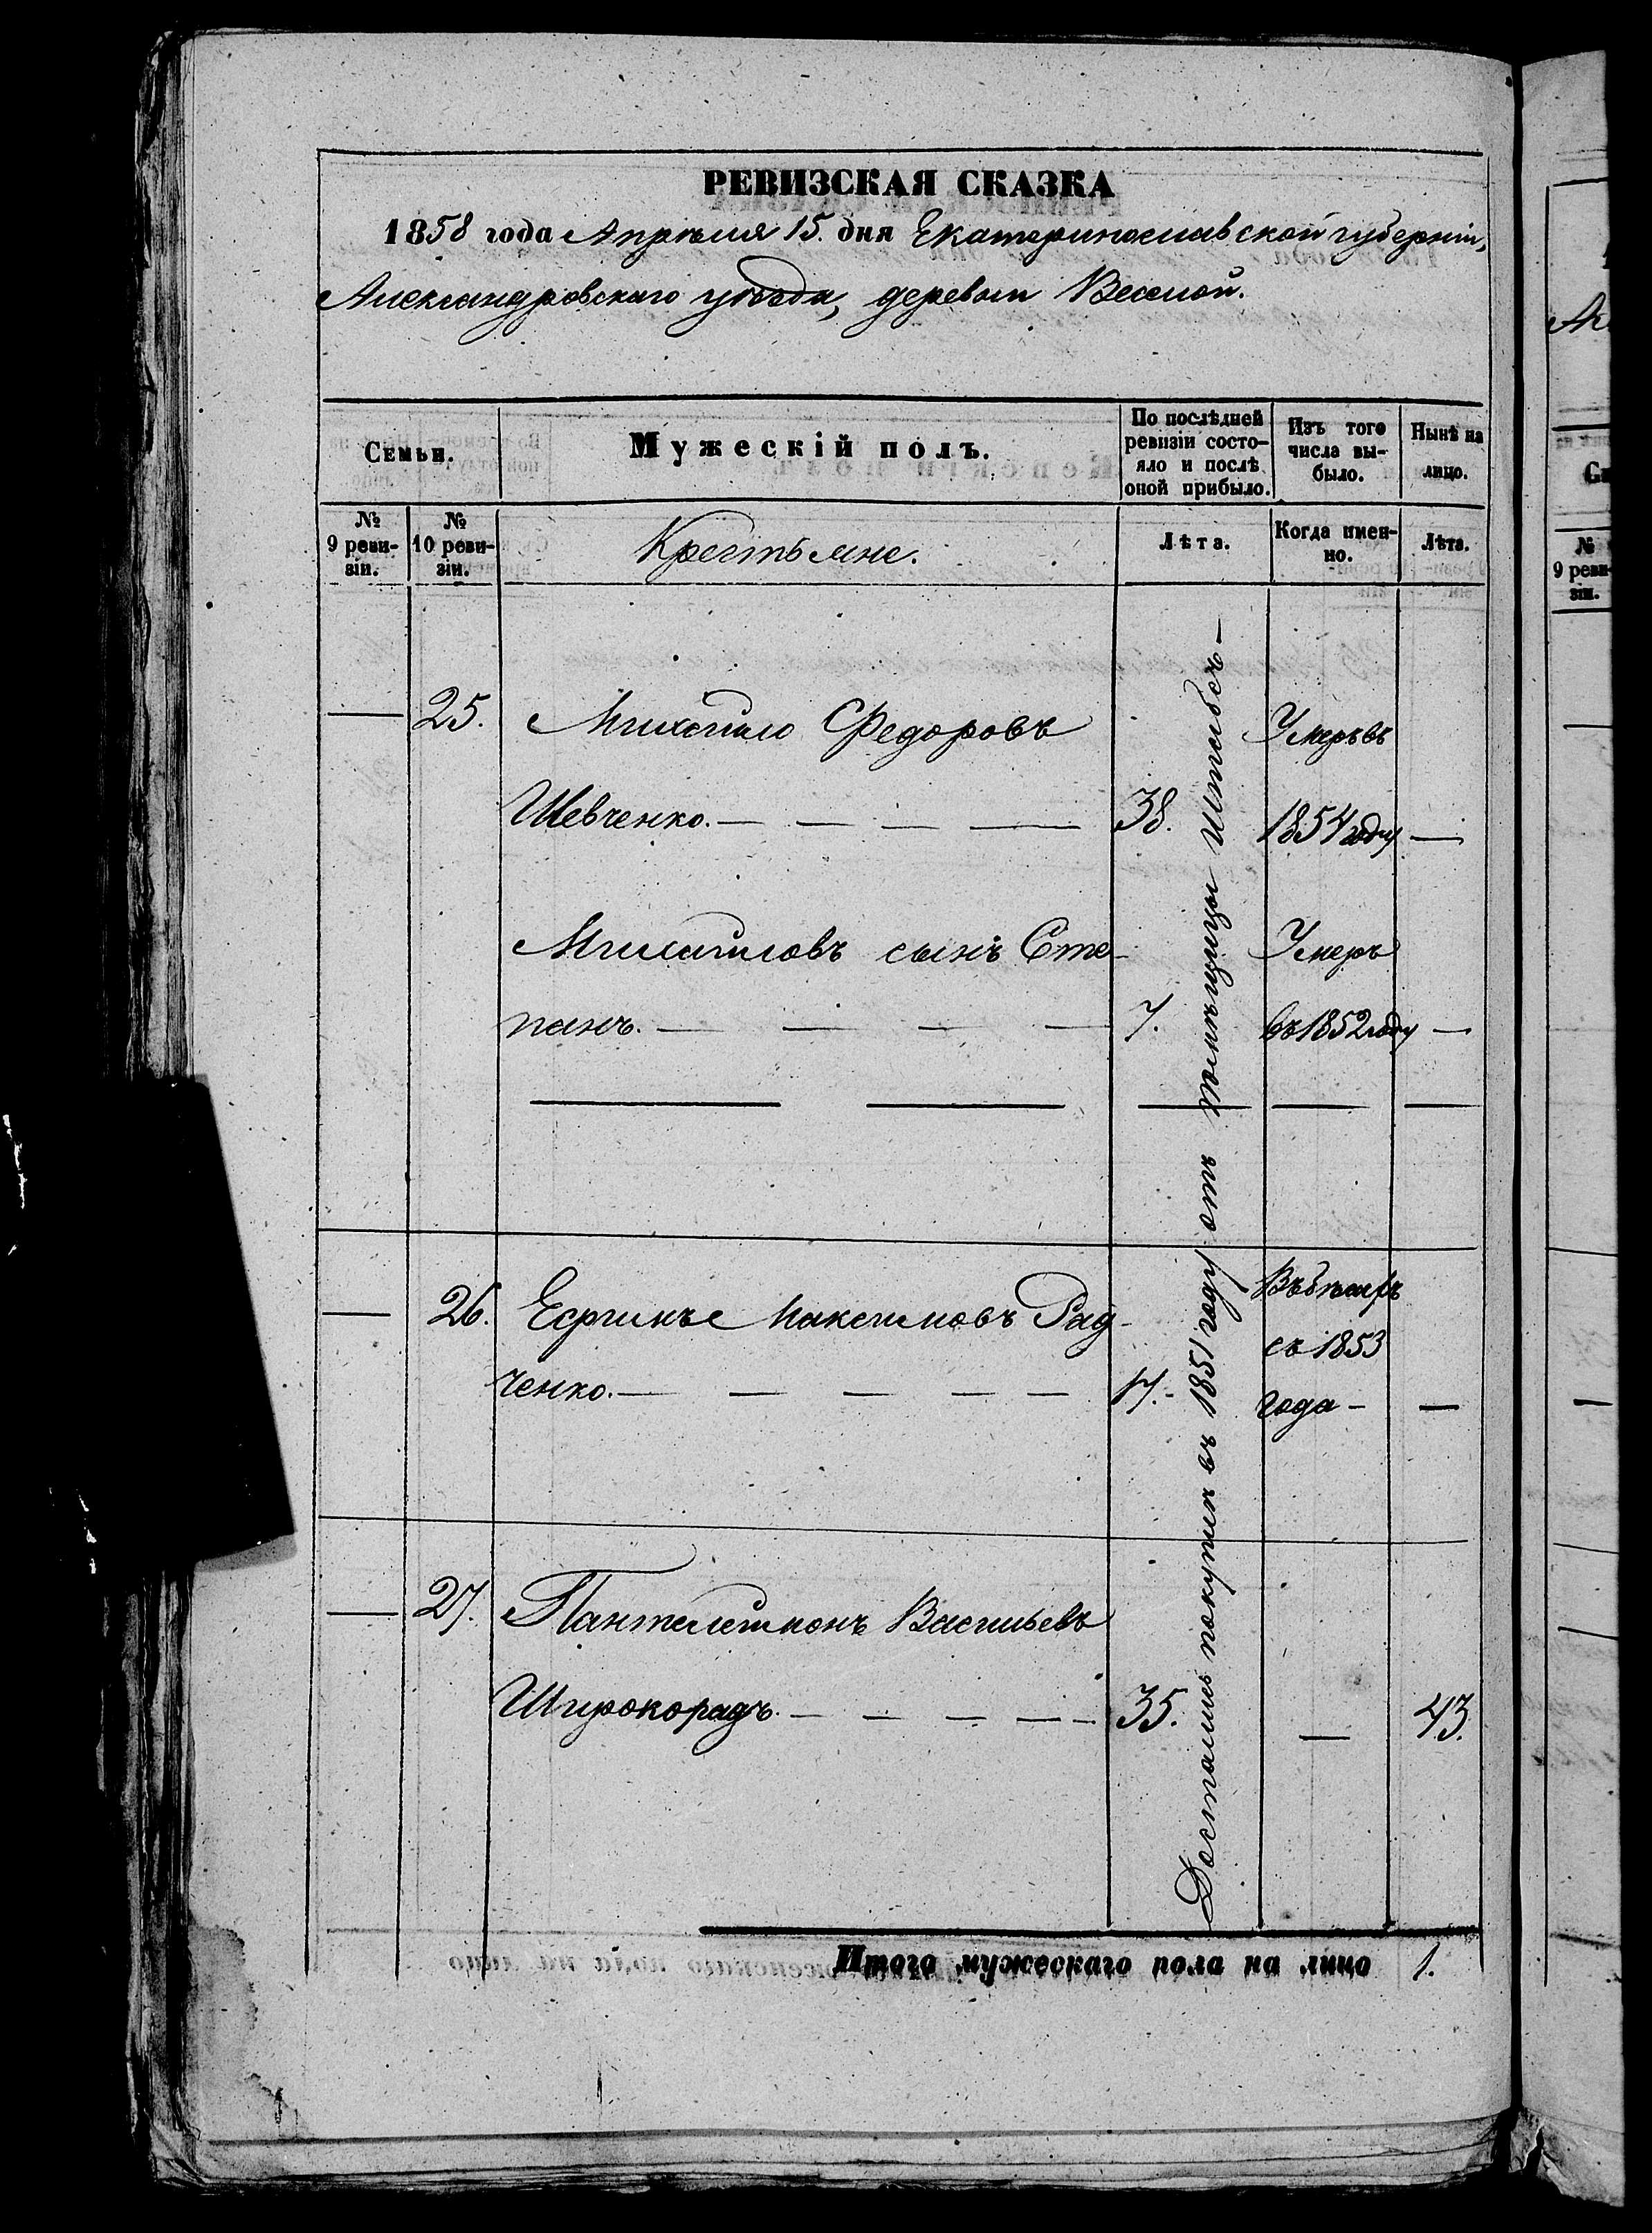 РЕВИЗСКАЯ СКАЗКА
1858 года Апрѣля 15. дня Екатеринославской губерніи,
Александровскаго уѣзда, деревни Веселой.
Семьи.
Мужескій полъ.
По послѣдней
ревизіи состо-
яло и послѣ
оной прибыло.
Изъ того
числа вы-
было.
Нынѣ на
лицо.
№
9 реви-
зіи.
№
10 реви-
зіи.
Крестьяне.
Лѣта.
Когда имен-
но.
Лѣта.
— 25. Михайло Федоровъ Умеръ въ
Шевченко. — — — — 38. 1854 году —
Михайловъ сынъ Сте- Умеръ
панъ. — — — — 7. въ 1852 году —
— 26. Ефимъ Максимовъ Рад- Въ бѣгахъ
ченко. — — — — — 17. съ 1853
года — —
— 27. Пантелеймонъ Васильевъ
Широкорадъ. — — — — 35. — 43.
Достались покупкѣ въ 1851 году отъ помѣщицы Штабсъ-
Итого мужескаго пола на лицо 1.
№
9 реви-
зіи.